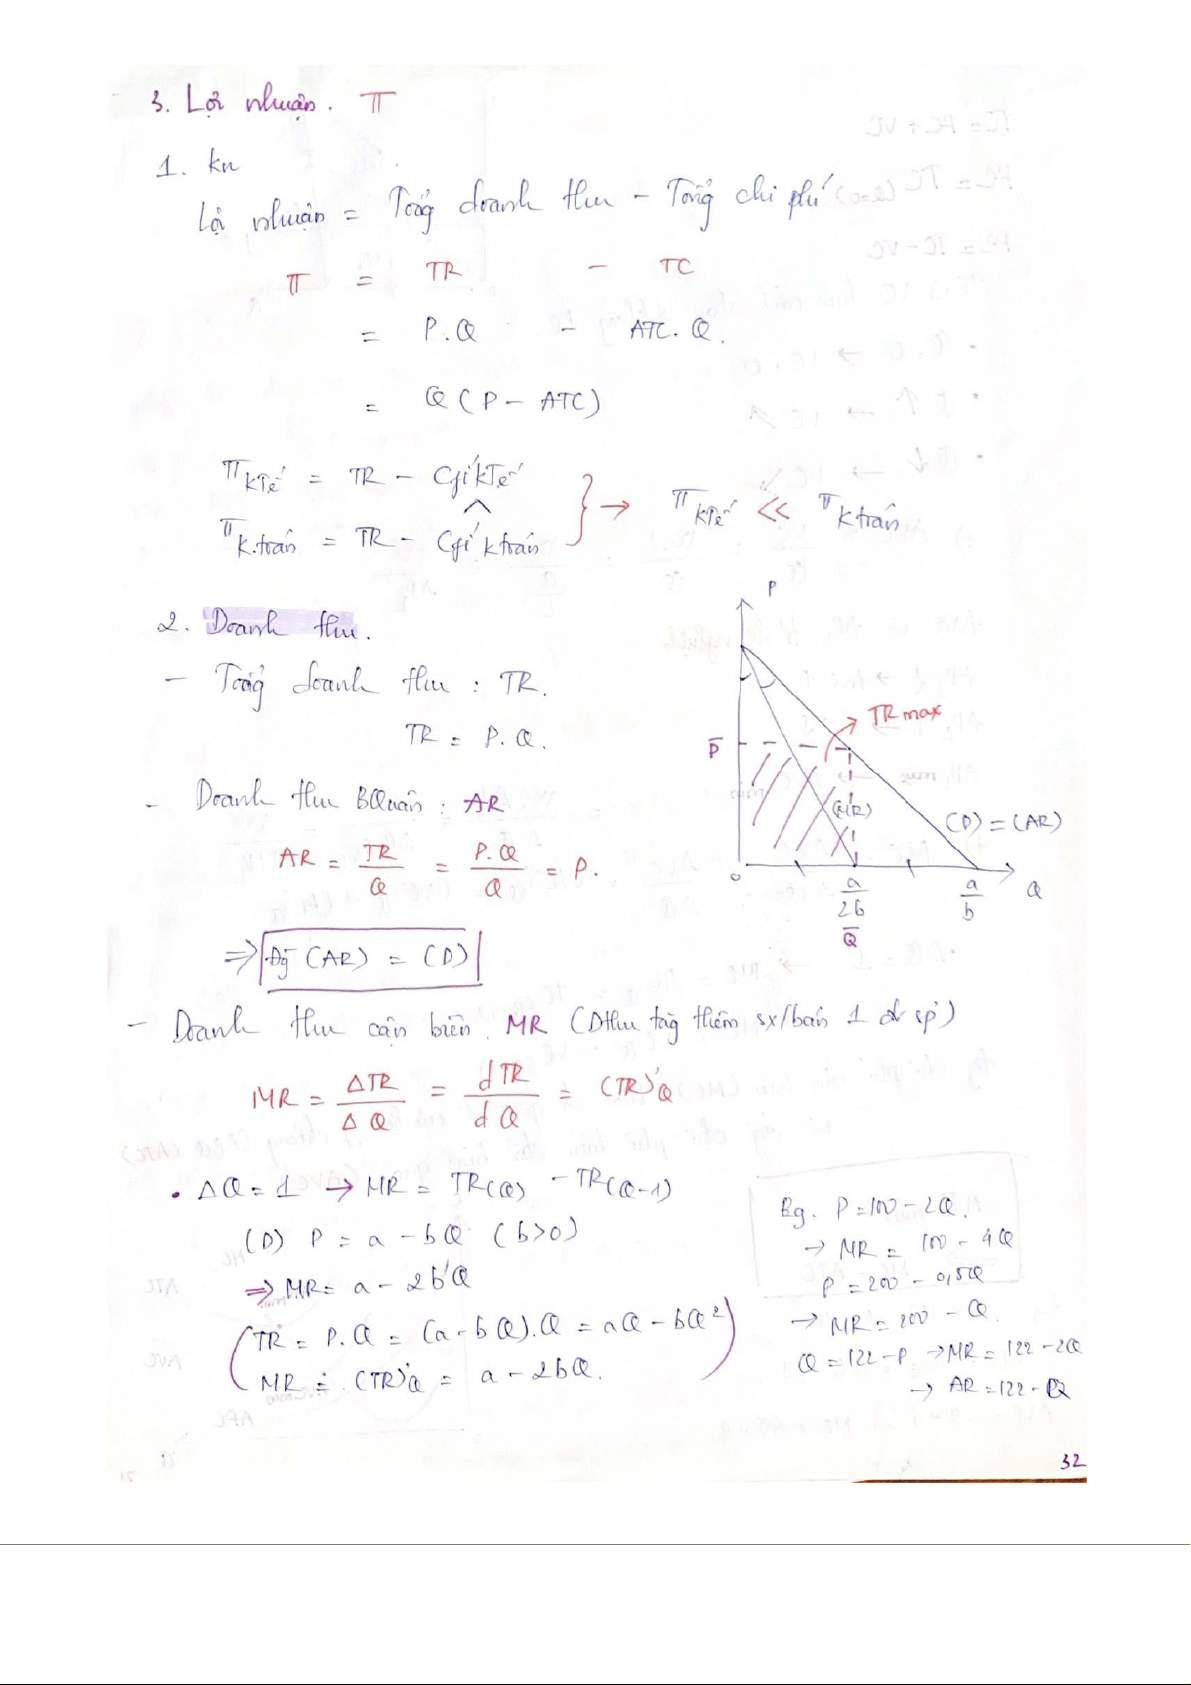 3. Lợi nhuận. π
1. kn
Lợi nhuận = Tổng doanh thu - Tổng chi phí
π = TR - TC
= P.Q - ATC.Q.
= Q(P - ATC)
π kTế = TR - Cfí kTế
π k.toán = TR - Cfí ktoán
→ π kTế << π ktoán
2. Doanh thu.
- Tổng doanh thu : TR.
TR = P.Q.
- Doanh thu BQuân : AR
AR = TR/Q = P.Q/Q = P.
⇒ Đg (AR) = (D)
P
TR max
P̄
(MR)
(D) = (AR)
0
a/2b
a/b
Q
Q̄
- Doanh thu cận biên MR (Dthu tăg thêm sx/bán 1 đv sp)
MR = ΔTR/ΔQ = dTR/dQ = (TR)'Q
• ΔQ = 1 → MR = TR(Q) - TR(Q-1)
(D) P = a - bQ (b>0)
⇒ MR = a - 2bQ
(TR = P.Q = (a - bQ).Q = aQ - bQ²
MR = (TR)'Q = a - 2bQ.)
P = 100 - 2Q.
→ MR = 100 - 4Q
P = 200 - 0,5Q
→ MR = 200 - Q.
Q = 122 - P → MR = 122 - 2Q
→ AR = 122 - Q
32